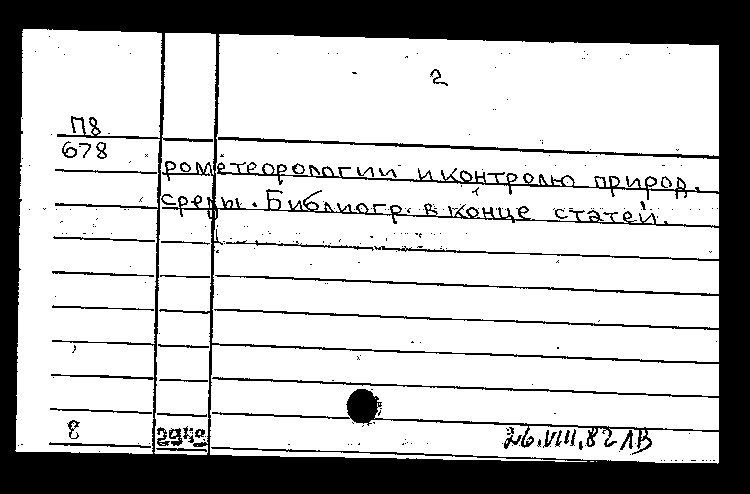 2
П8
678
рометеорологии и контролю природ.
среды. Библиогр. в конце статей.
8
26.VIII.82 ЛВ